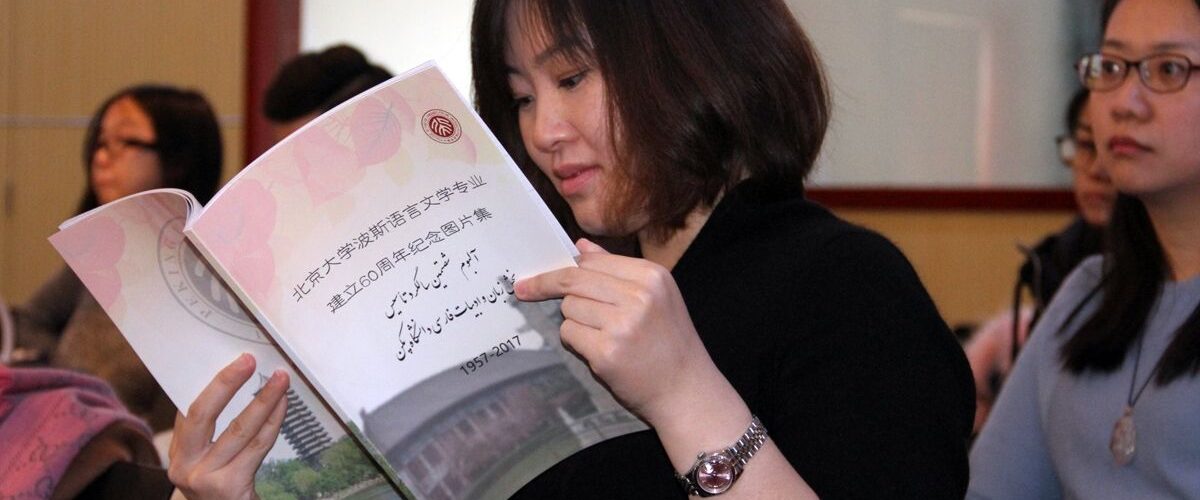 北京大学波斯语言文学专业
建立60周年纪念图片集
آلبوم شصتمین سالگرد تاسیس
بخش زبان و ادبیات فارسی دانشگاه پکن
1957-2017